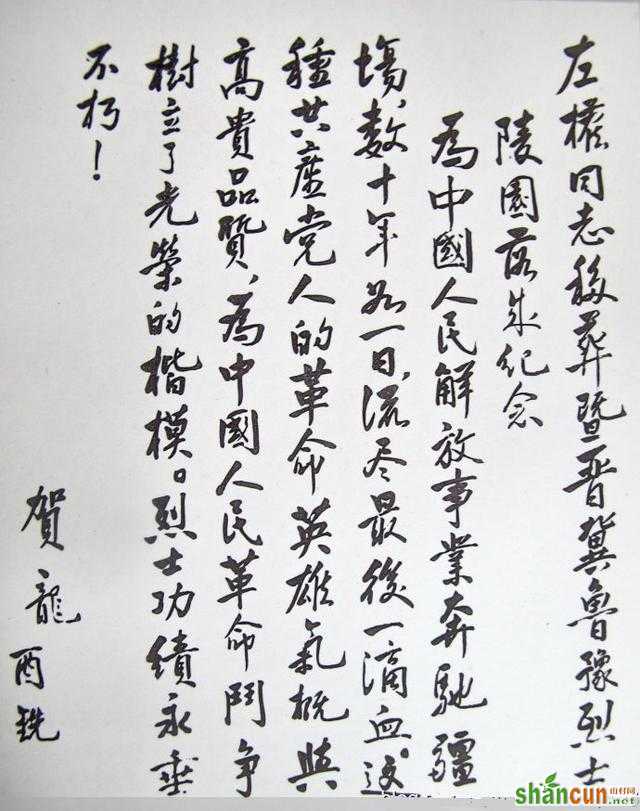 左權同志移葬暨晋冀魯豫烈士
陵園落成纪念
為中國人民解放事業奔馳疆
場，数十年如一日，流尽最後一滴血。这
種共産党人的革命英雄氣概與
高貴品質，為中國人民革命鬥争
樹立了光榮的楷模。烈士功績永垂
不朽！
賀龍
酉銑
shancun.net
山村网